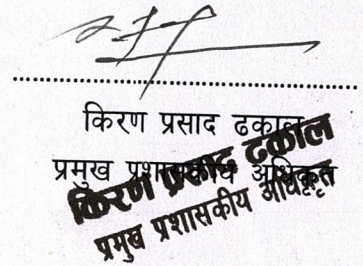 किरण प्रसाद ढकाल
प्रमुख प्रशासकीय अधिकृत
किरण प्रसाद ढकाल
प्रमुख प्रशासकीय अधिकृत